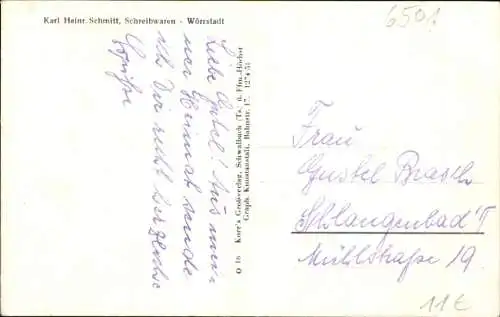 Karl Heinr. Schmitt, Schreibwaren - Wörrstadt
6501
Liebe Gustel! Aus mei-
ner Heimat sende
ich Dir recht herzliche
Grüße
O 16 Korr's Großverlag, Schwalbach (Ts.) u. Ffm.-Höchst
Graph. Kunstanstalt, Bahnstr. 17. 1274 54
Frau
Gustel Brasch
Schlangenbad/T
Mühlstraße 19
11€